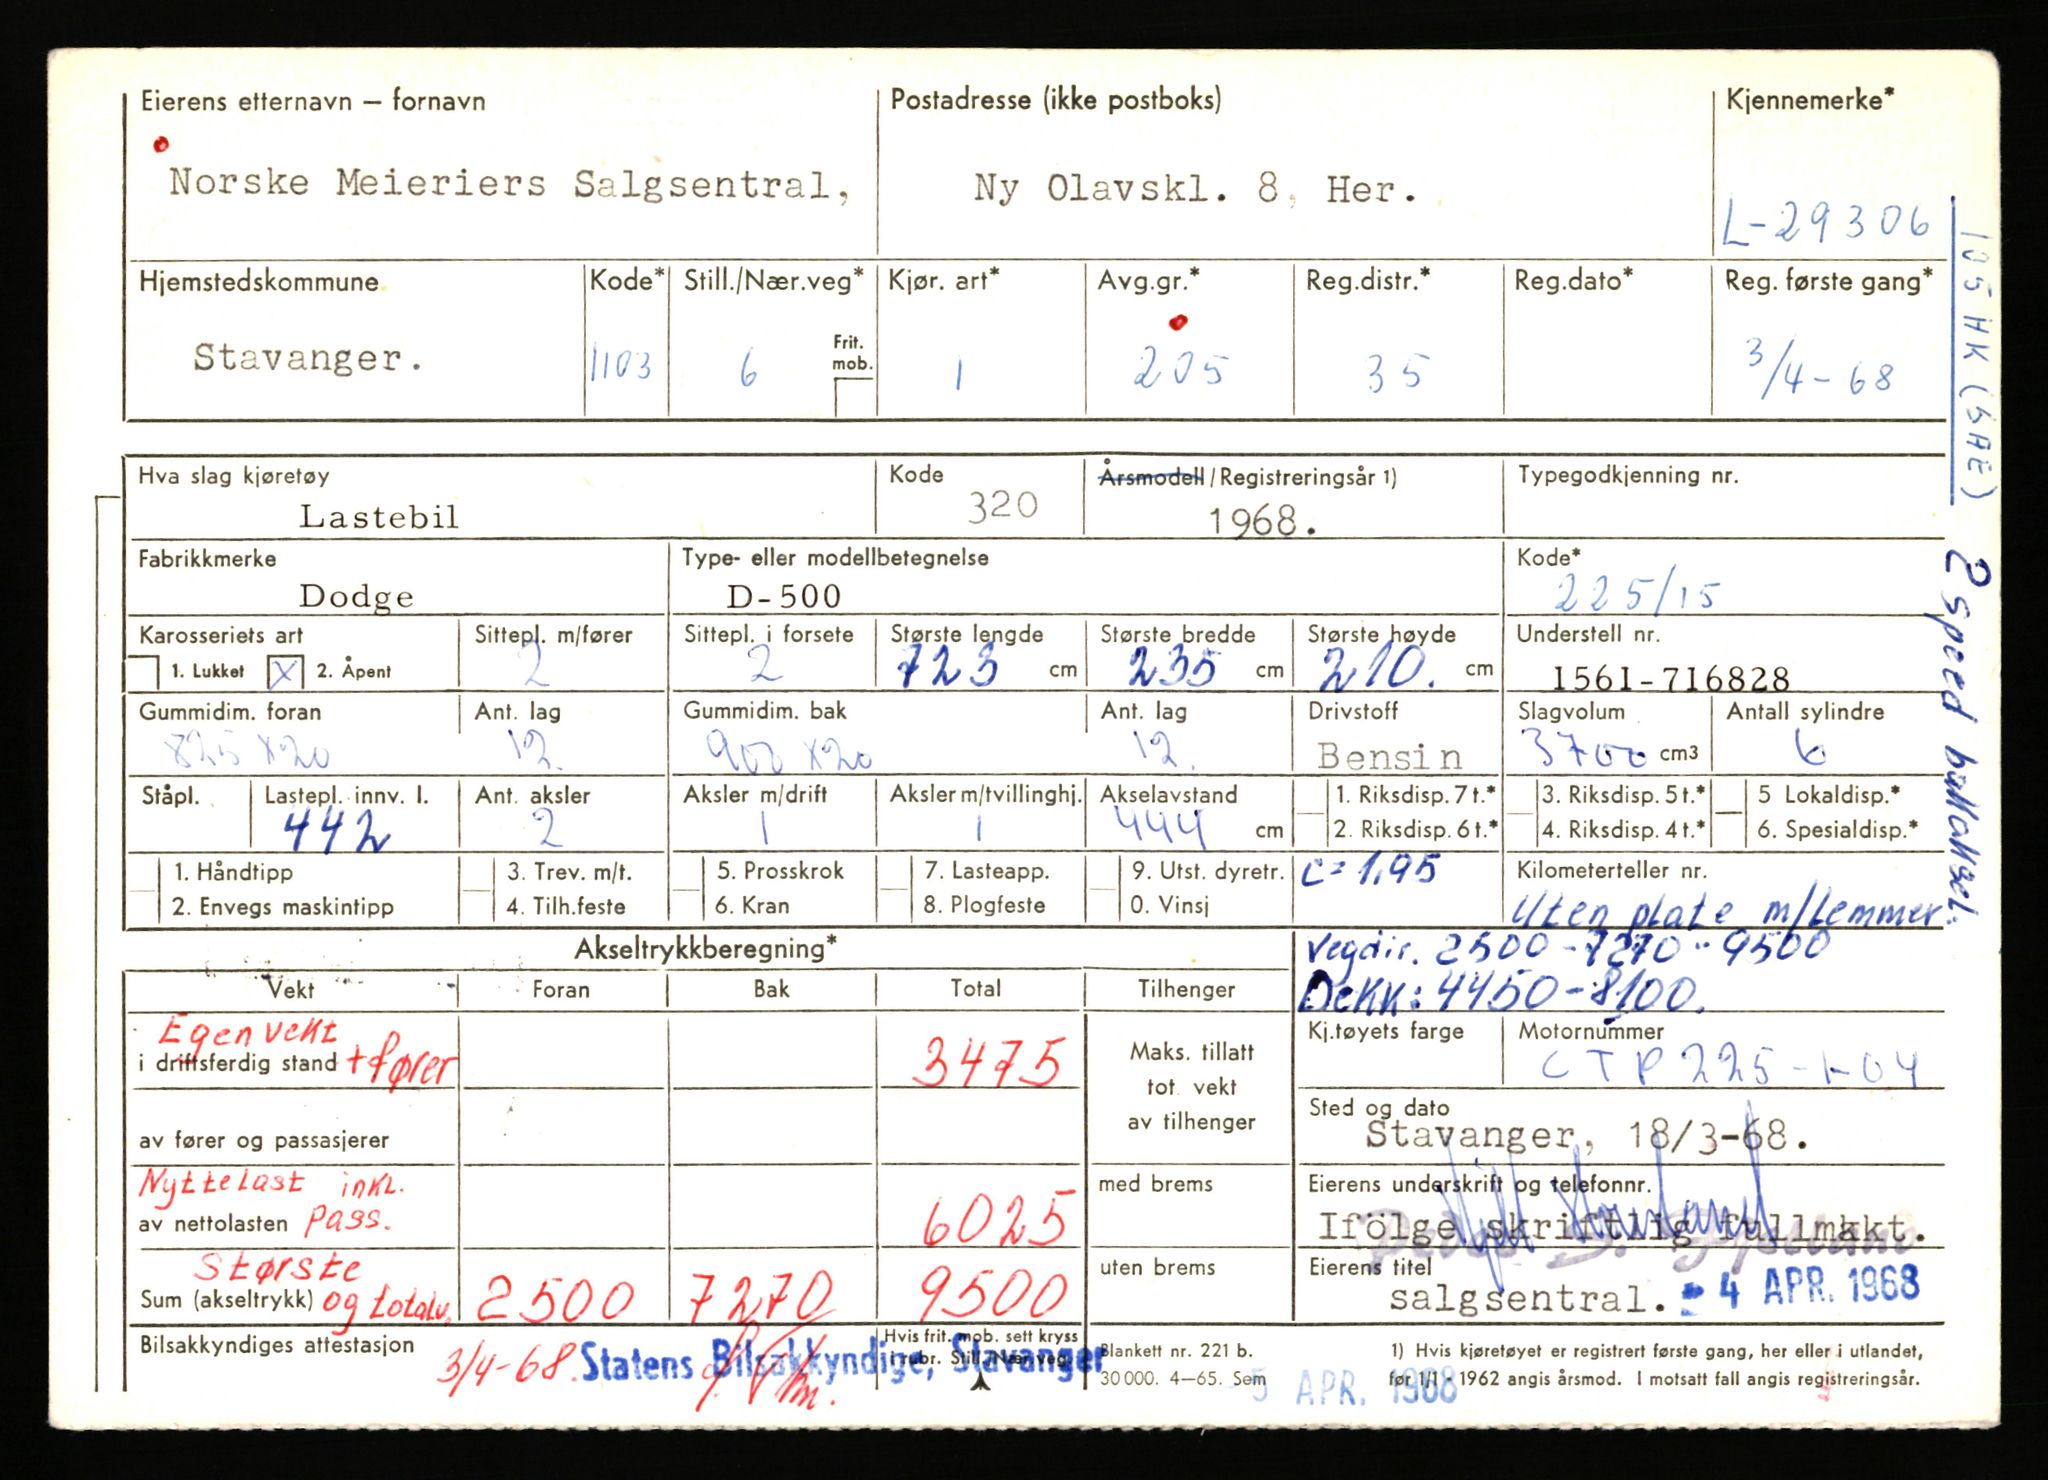 Eierens etternavn – fornavn
Postadresse (ikke postboks)
Kjennemerke*
Norske Meieriers Salgsentral,
Ny Olavskl. 8, Her.
L-29306
Hjemstedskommune
Kode*
Still./Nær.veg*
Kjør. art*
Avg.gr.*
Reg.distr.*
Reg.dato*
Reg. første gang*
Stavanger.
1103
6
Frit. mob.
1
205
35
3/4-68
105 HK (SAE)
2 speed bakaksel.
Hva slag kjøretøy
Kode
Årsmodell/Registreringsår 1)
Typegodkjenning nr.
Lastebil
320
1968.
Fabrikkmerke
Type- eller modellbetegnelse
Kode*
Dodge
D-500
225/15
Karosseriets art
Sittepl. m/fører
Sittepl. i forsete
Største lengde
Største bredde
Største høyde
Understell nr.
1. Lukket X 2. Åpent
2
2
723 cm
235 cm
210. cm
1561-716828
Gummidim. foran
Ant. lag
Gummidim. bak
Ant. lag
Drivstoff
Slagvolum
Antall sylindre
825 x20
12.
900 x20
12.
Bensin
3700 cm3
6
Ståpl.
Lastepl. innv. l.
Ant. aksler
Aksler m/drift
Aksler m/tvillinghj.
Akselavstand
1. Riksdisp. 7 t.*
3. Riksdisp. 5 t.*
5 Lokaldisp.*
442
2
1
1
444 cm
2. Riksdisp. 6 t.*
4. Riksdisp. 4 t.*
6. Spesialdisp.*
1. Håndtipp
3. Trev. m/t.
5. Prosskrok
7. Lasteapp.
9. Utst. dyretr.
C=1.95
Kilometerteller nr.
2. Envegs maskintipp
4. Tilh.feste
6. Kran
8. Plogfeste
0. Vinsj
Uten plate m/Lemmer.
Akseltrykkberegning*
Vegdir. 2500-7270-9500
Vekt
Foran
Bak
Total
Tilhenger
Dekk: 4450-8100.
Egenvekt
i driftsferdig stand + fører
3475
Maks. tillatt
tot. vekt
av tilhenger
Kj.tøyets farge
Motornummer
CTP225-1-04
av fører og passasjerer
Sted og dato
Stavanger, 18/3-68.
Nyttelast inkl.
av nettolasten pass.
6025
med brems
Eierens underskrift og telefonnr.
Ifölge skriftlig fullmakt.
Største
Sum (akseltrykk) og totalv.
2500
7270
9500
uten brems
Eierens titel
salgsentral.
- 4 APR. 1968
Bilsakkyndiges attestasjon
3/4-68.
Statens Bilsakkyndige, Stavanger
Hvis frit. mob. sett kryss
i rubr. Still./Nær.veg.
Blankett nr. 221 b.
30 000. 4–65. Sem
5 APR. 1968
1) Hvis kjøretøyet er registrert første gang, her eller i utlandet,
før 1/1 - 1962 angis årsmod. I motsatt fall angis registreringsår.